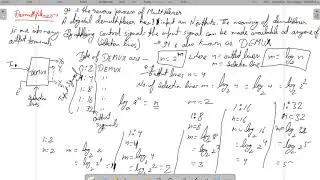 Demultiplexer:-
It is the reverse process of Multiplexer
A digital demultiplexer has 1 input an N outputs. The meaning of demultiplexer
is one to many
By applying control signals the input signal can be made available at anyone of
output terminals
(Selection lines)
It is also known as DEMUX
DEMUX
Selection lines
Types of DEMUX are -
1:2 DEMUX
1:4 DEMUX
1:8 DEMUX
1:16
1:32
output signals
n = 2^m where n = output lines
m = selection lines
m = log_2 n
output lines n = 4
No. of selection lines m = log_2 n
log_a a^n = n
m = 2
1:2
n=2
m = log_2 2
= 1
1:4
n=4
m = log_2 4
= log_2 2^2 = 2
1:8
n=8
m = log_2 8
= log_2 2^3
= 3
1:16
n=16
m = log_2 16
= log_2 2^4
= 4
1:32
n = 32
m = log_2 32
= log_2 2^5
= 5